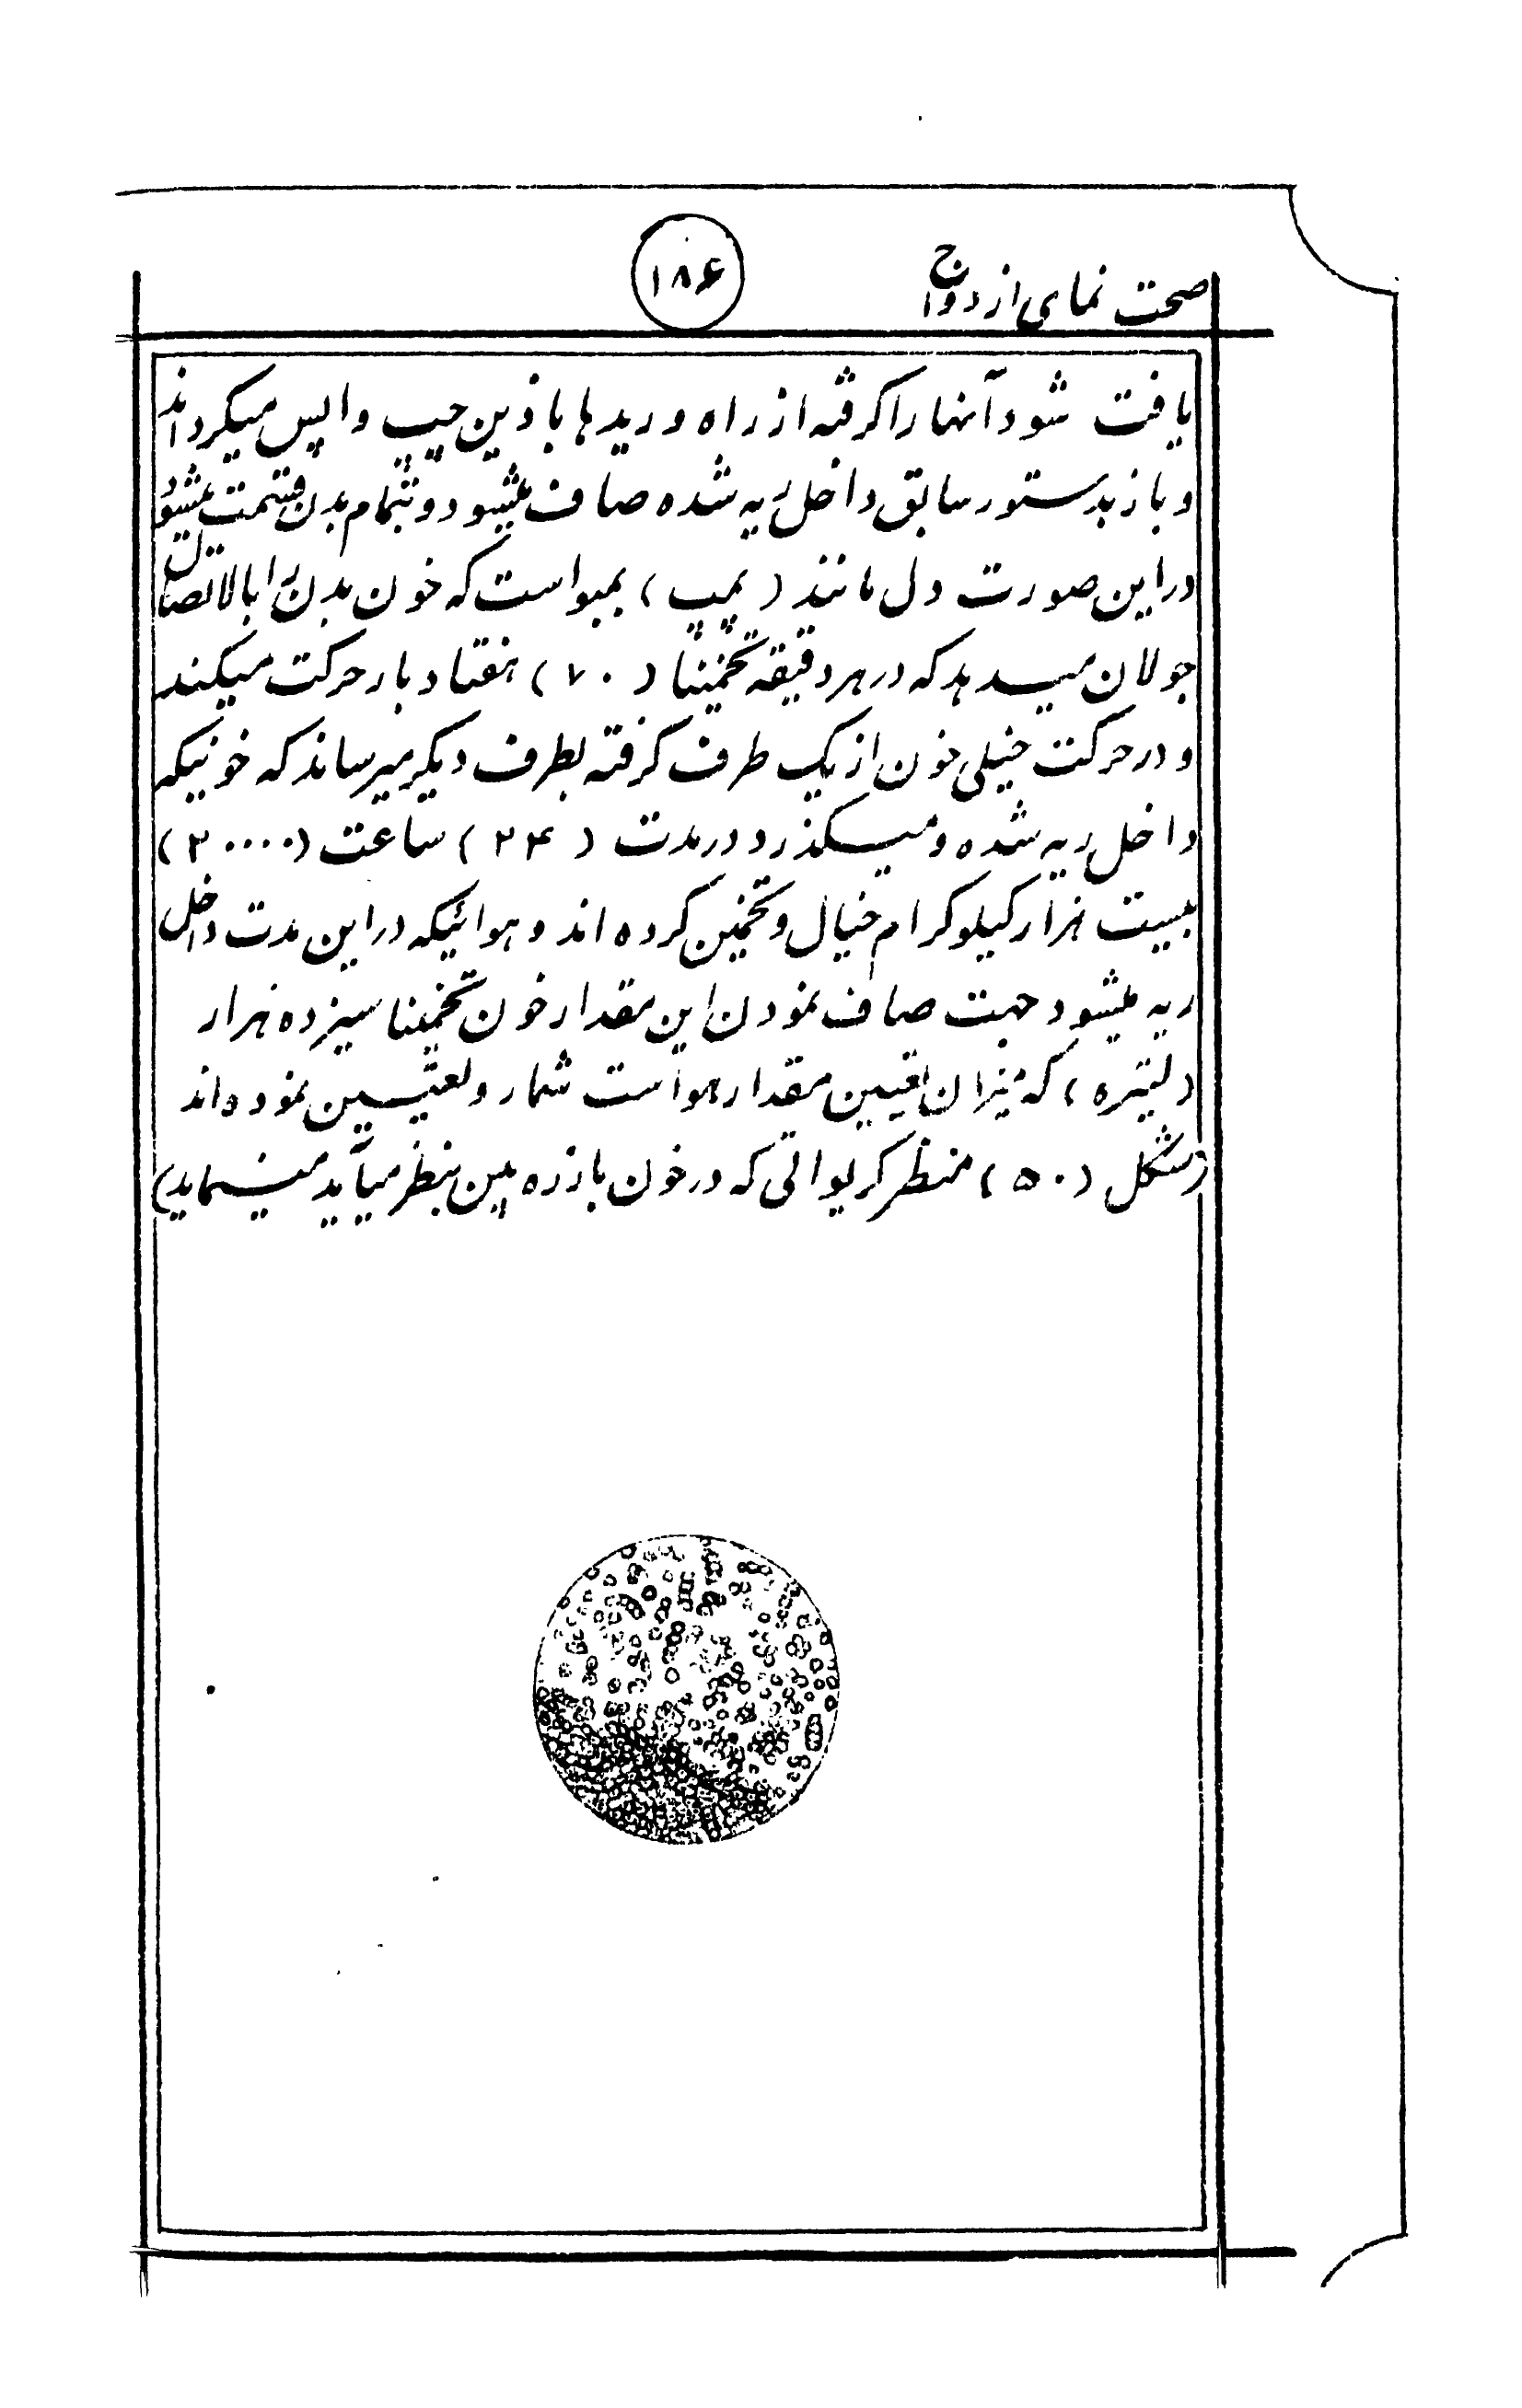 صحت نمای ازدواج
۱۸۶
یافت شود آنها را کرفته از راه ورید ها باذین چپ واپس میکرداند
و باز بدستور سابق داخل ریه شده صاف میشود و بتمام بدن قسمت میشود
در این صورت دل مانند (پمپ) بمبواست که خون بدن را بالاتصال
جولان میدهد که در هر دقیقه تخمینا (۷۰) هفتاد بار حرکت میکند
و در حرکت خیلی خون از یک طرف کرفته بطرف دیکر میرساند که خونیکه
داخل ریه شده و میکذرد در مدت (۲۴) ساعت (۲۰۰۰۰)
بیست هزار کیلوکرام خیال و تخمین کرده اند و هوائیکه در این مدت داخل
ریه میشود جهت صاف نمودن این مقدار خون تخمینا سیزده هزار
(لیتره) که میزان تعیین مقدار هوآست شمار و تعیین نموده اند
(شکل (۵۰) منظر کریواتی که در خون با ذره بین بنظر میآید مینماید)